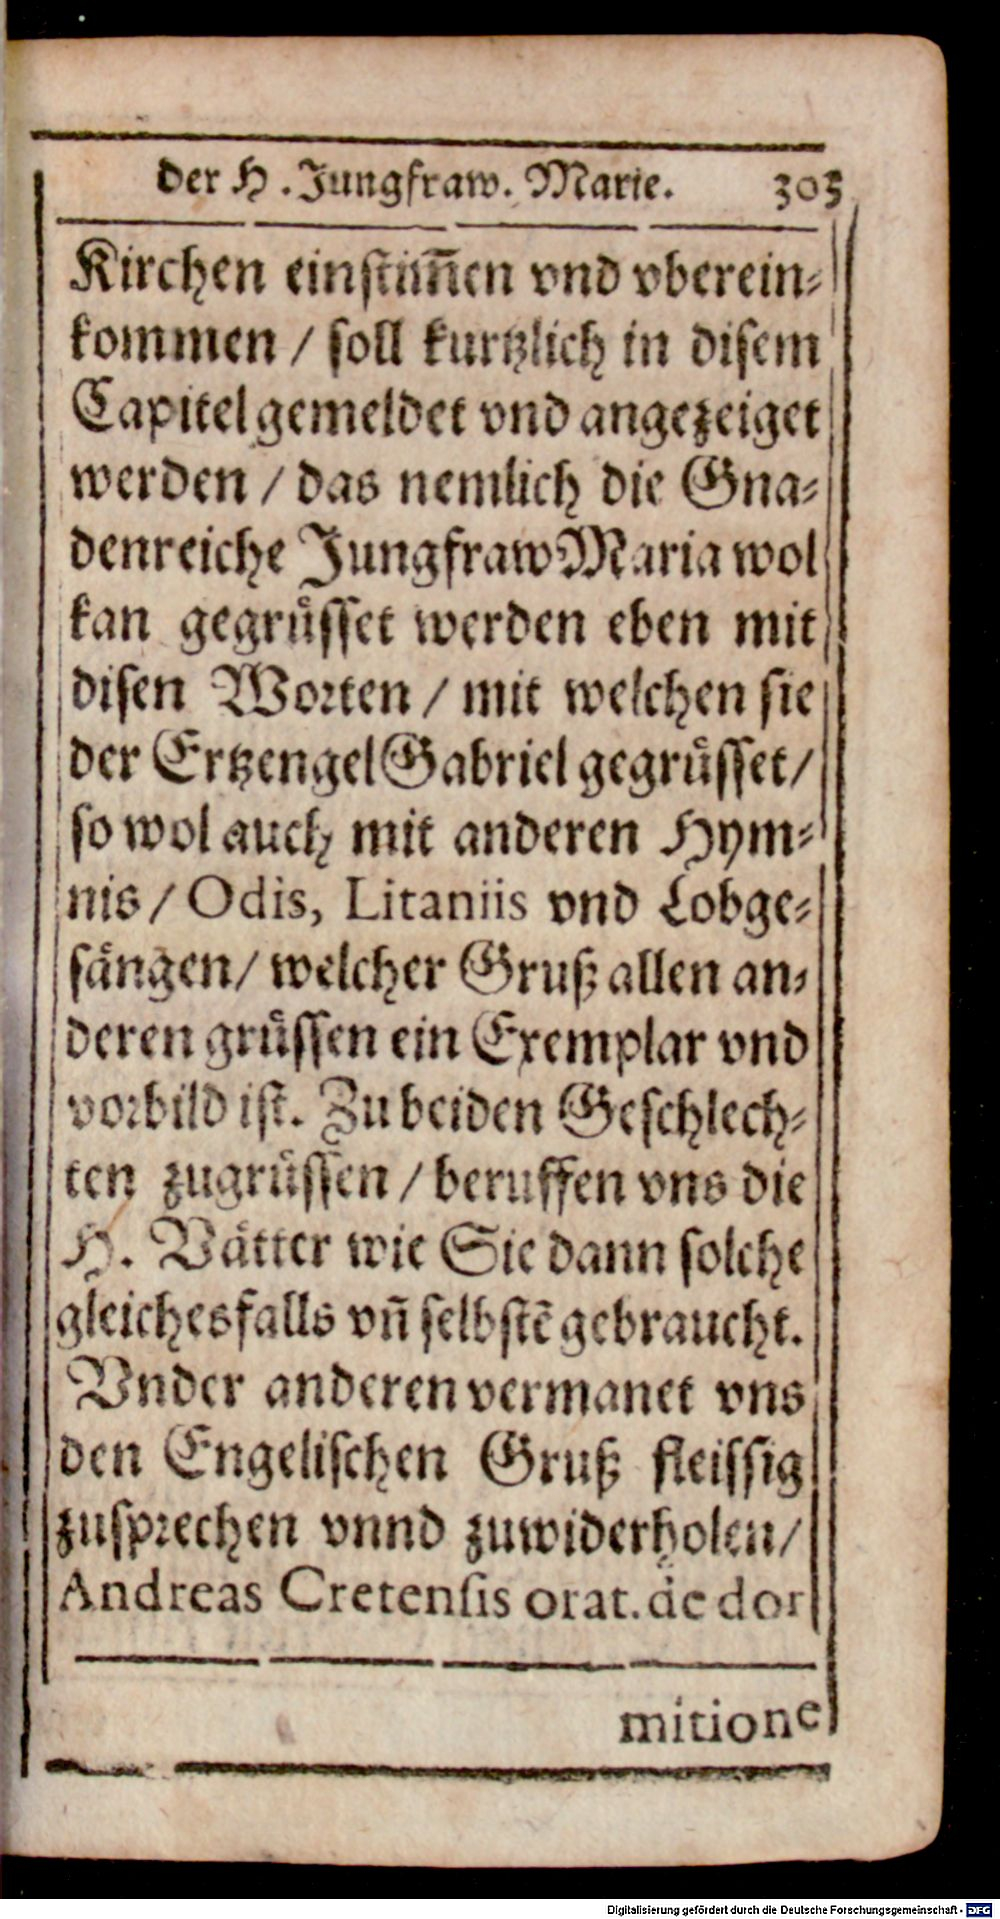 der H. Jungfraw. Marie. 303
Kirchen einstim̃en vnd vberein⸗
kommen / soll kurtzlich in disem
Capitel gemeldet vnd angezeiget
werden / das nemlich die Gna⸗
denreiche Jungfraw Maria wol
kan gegruͤsset werden eben mit
disen Worten / mit welchen sie
der Ertzengel Gabriel gegruͤsset /
so wol auch mit anderen Hym⸗
nis / Odis, Litaniis vnd Lobge⸗
saͤngen / welcher Gruß allen an⸗
deren gruͤssen ein Exemplar vnd
vorbild ist. Zu beiden Geschlech⸗
ten zugruͤssen / beruffen vns die
H. Vaͤtter wie Sie dann solche
gleichesfalls vn̄ selbstē gebraucht.
Vnder anderen vermanet vns
den Engelischen Gruß fleissig
zusprechen vnnd zuwiderholen /
Andreas Cretensis orat. de dor
mitione
Digitalisierung gefördert durch die Deutsche Forschungsgemeinschaft - DFG